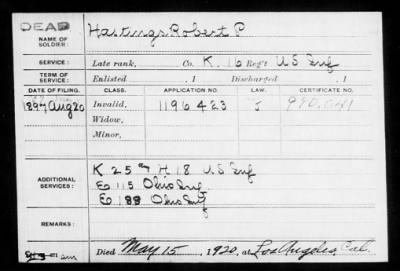 DEAD
NAME OF SOLDIER: Hastings Robert P
SERVICE: Late rank, Co. K. 16 Reg't U S Inf
TERM OF SERVICE: Enlisted , 1 Discharged , 1
DATE OF FILING. CLASS. APPLICATION NO. LAW. CERTIFICATE NO.
1897 Aug 20 Invalid, 1196423 J 990.041
Widow,
Minor,
ADDITIONAL SERVICES: K 25 H 18 U S Inf
E 115 Ohio Inf.
E 188 Ohio Inf
REMARKS:
Died May 15, 1920, at Los Angeles, Cal.